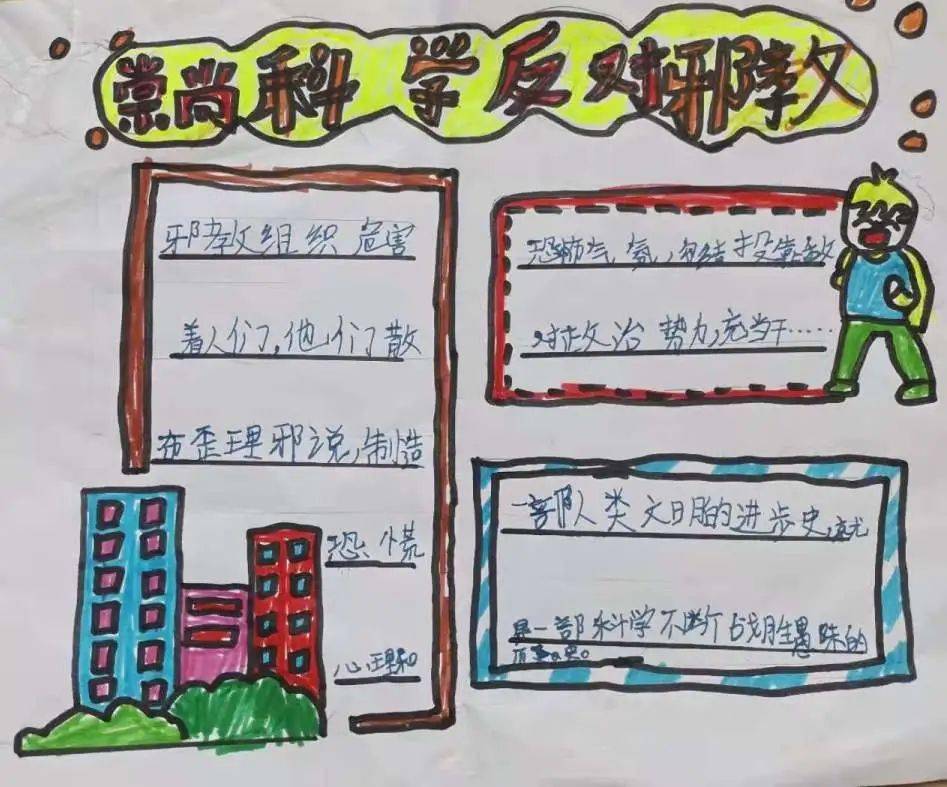 崇尚科学反对邪教
邪教组织危害
着人们,他们散
布歪理邪说,制造
恐慌
心理和
恐怖气氛,勾结投靠敌
对政治势力,充当干……
一部人类文明的进步史,就
是一部科学不断战胜愚昧的
历史。